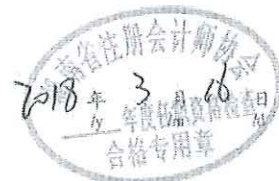 南省注册会计师协会
2018 年 3 月 日
/y /m /d
年度任职资格检查
合格专用章